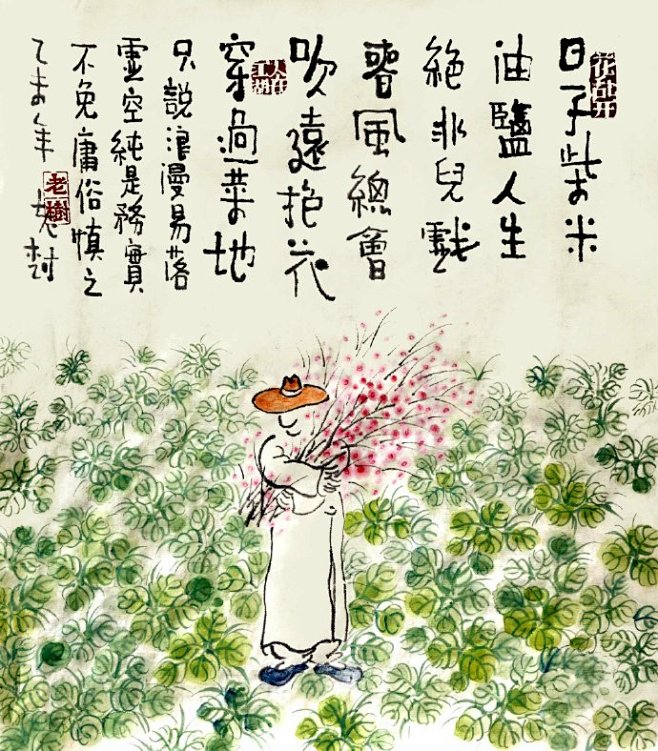 花乱开
日子柴米
油鹽人生
絕非兒戲
春風總會
吹遠抱花
人在江湖
穿過菜地
只說浪漫易落
虛空純是務實
不免庸俗慎之
乙未年 老树
老樹